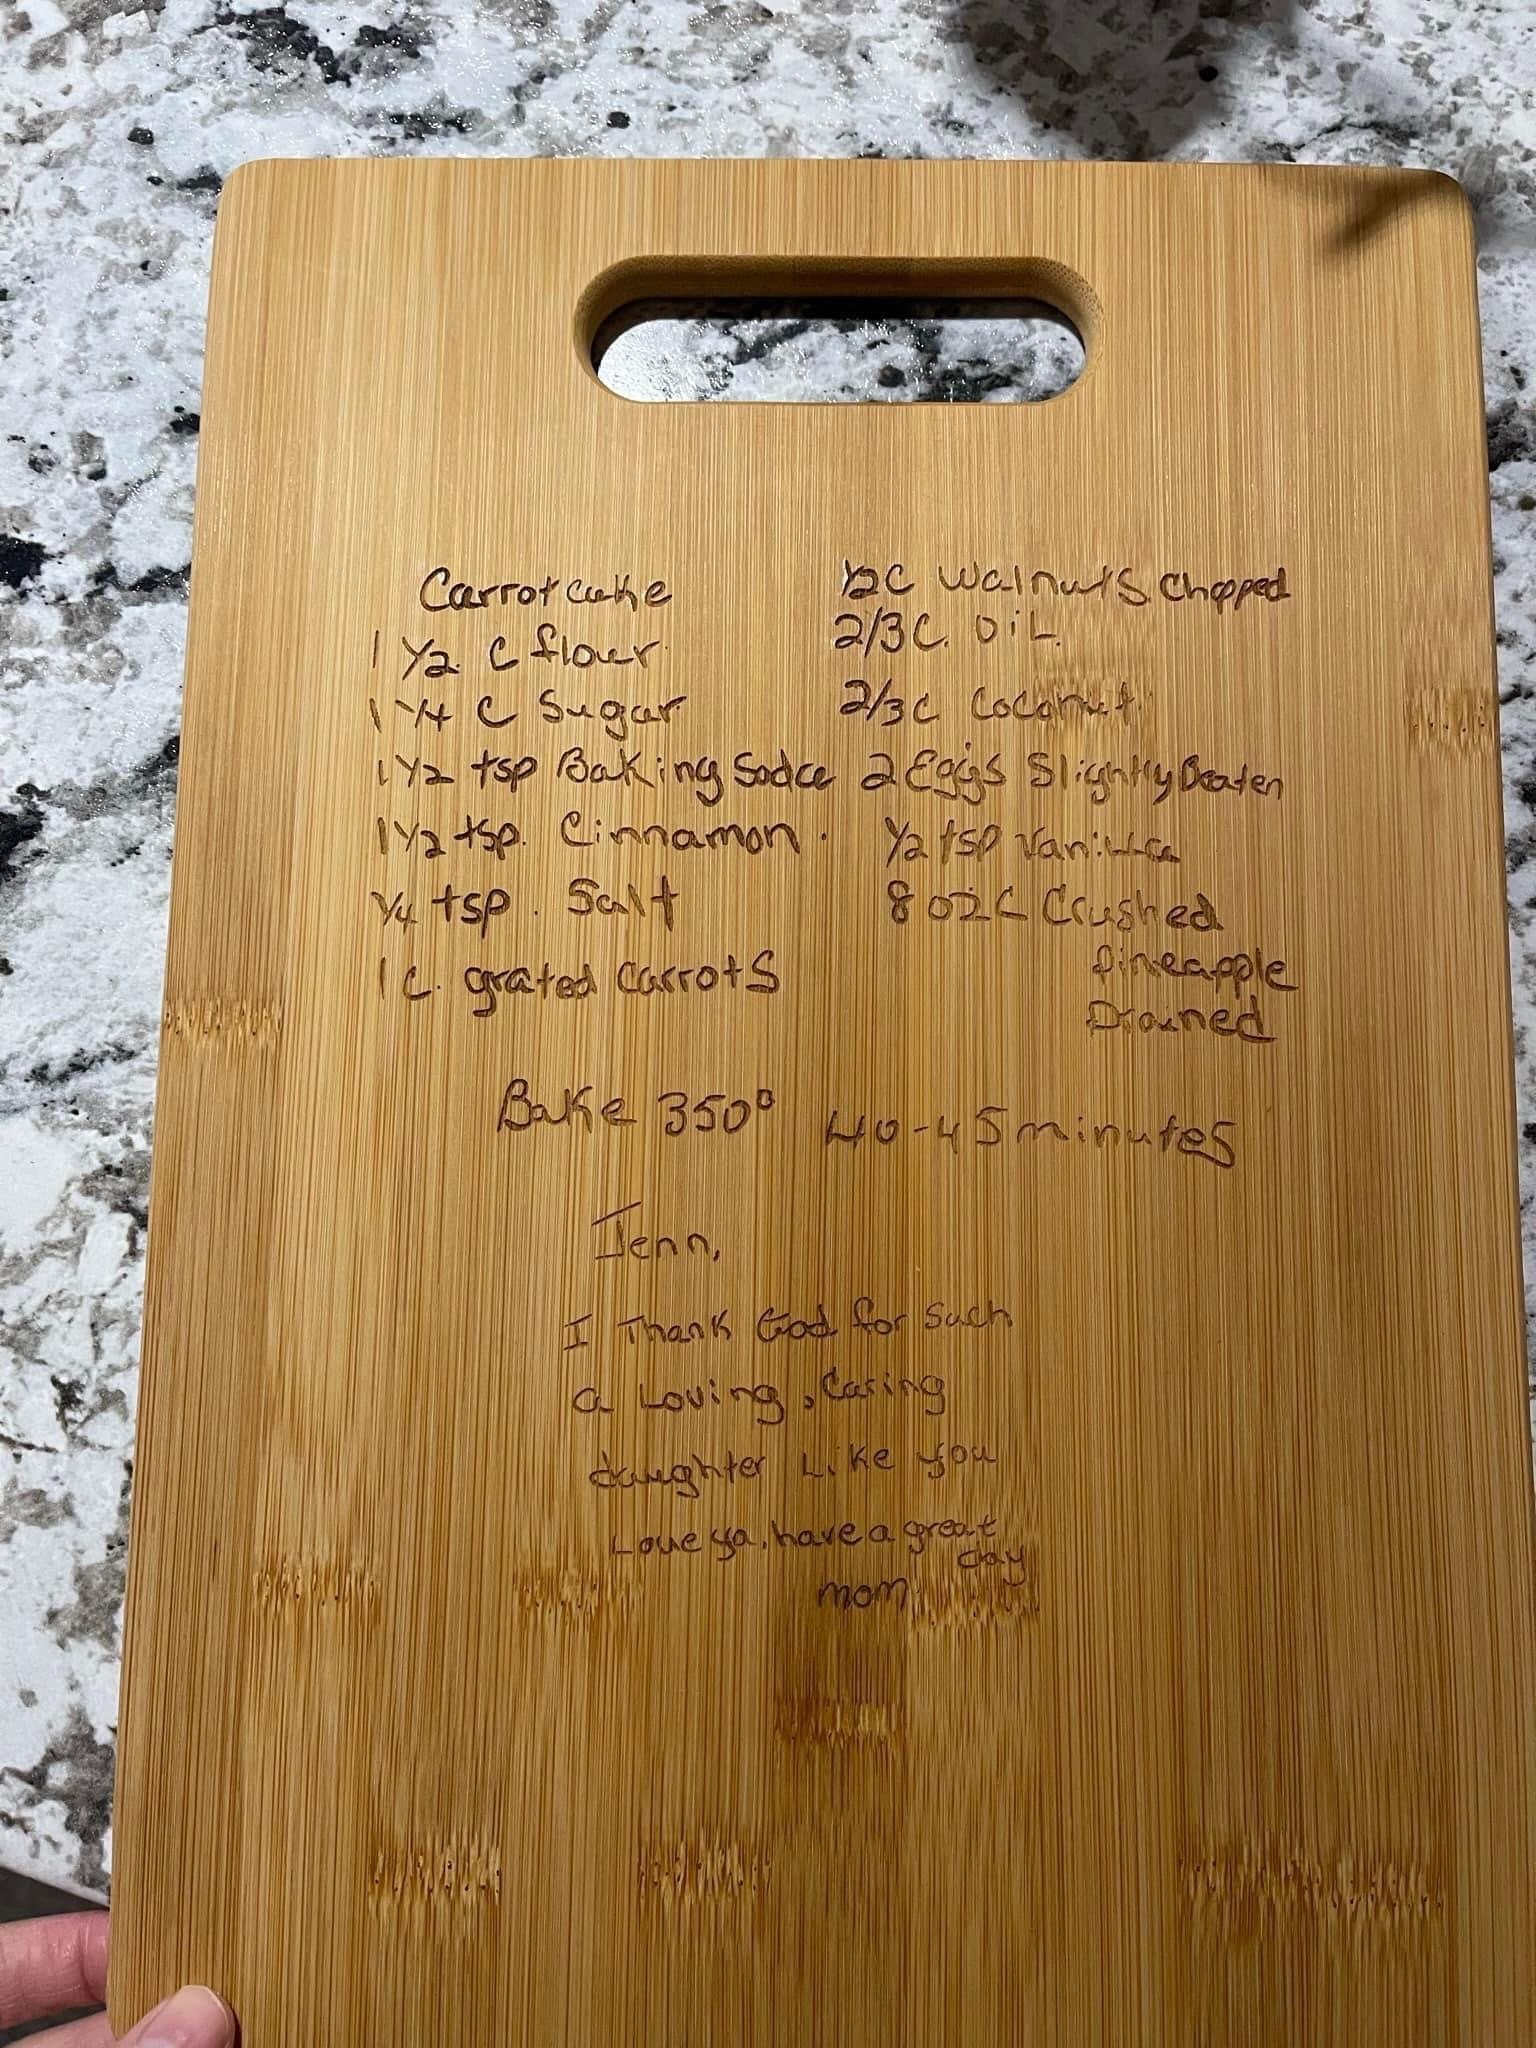 Carrot cake
1 1/2 C flour
1 1/4 C Sugar
1 1/2 tsp Baking Soda
1 1/2 tsp. Cinnamon.
1/4 tsp. Salt
1 C. grated Carrots
1/2 C Walnuts Chopped
2/3 C. Oil.
2/3 C Coconut
2 Eggs Slightly Beaten
1/2 tsp Vanilla
8 oz C Crushed
Pineapple
Drained
Bake 350° 40-45 minutes
Jenn,
I Thank God for Such
a Loving, Caring
daughter Like you
Love ya, have a great
day
mom